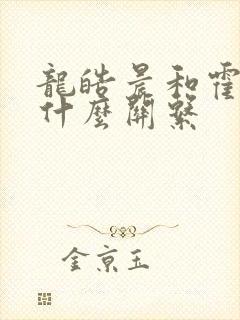 龍皓晨和霍
什麼關繫
金京玉